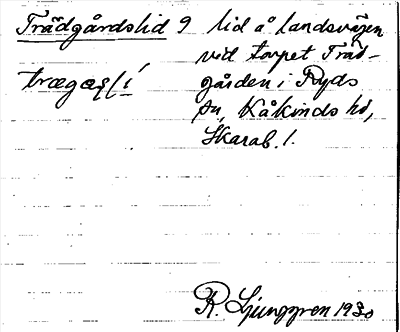 Trädgårdslid 9 lid å landsvägen
vid torpet Träd-
gården i Ryds
sn, Kåkinds hd,
Skarab. l.
R. Ljunggren 1930